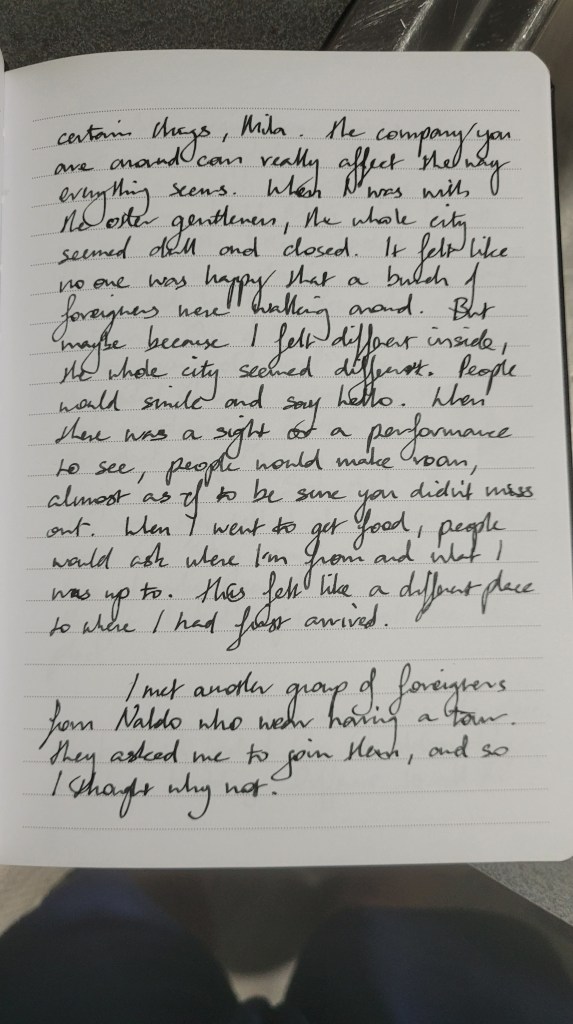 certain things, Mila. The company you
are around can really affect the way
everything seems. When I was with
the other gentlemen, the whole city
seemed dull and closed. It felt like
no one was happy that a bunch of
foreigners were walking around. But
maybe because I felt different inside,
the whole city seemed different. People
would smile and say hello. When
there was a sight or a performance
to see, people would make room,
almost as if to be sure you didn't miss
out. When I went to get food, people
would ask where I'm from and what I
was up to. This felt like a different place
to where I had first arrived.
I met another group of foreigners
from Naldo who were having a tour.
They asked me to join them, and so
I thought why not.